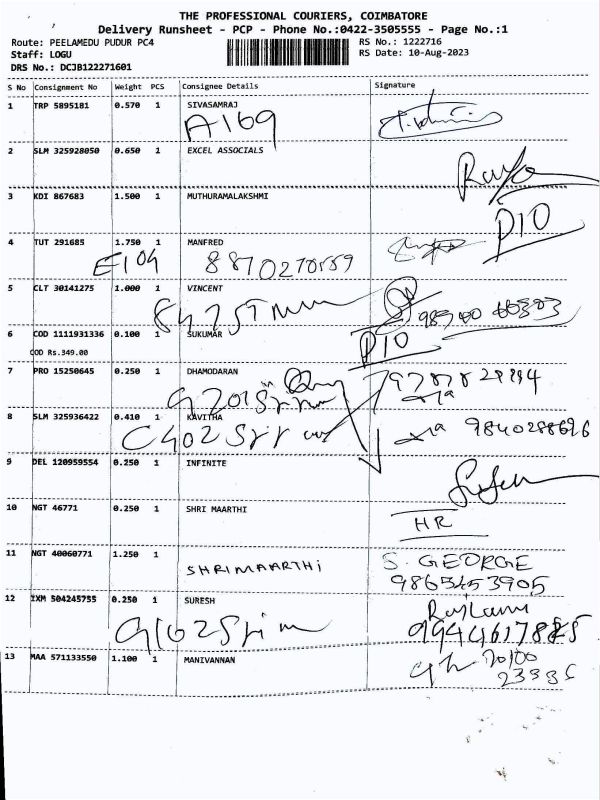 THE PROFESSIONAL COURIERS, COIMBATORE
Delivery Runsheet - PCP - Phone No.:0422-3505555 - Page No.:1
Route: PEELAMEDU PUDUR PC4 RS No.: 1222716
Staff: LOGU RS Date: 10-Aug-2023
DRS No.: DCJB122271601
S No Consignment No Weight PCS Consignee Details Signature
1 TRP 5895181 0.570 1 SIVASAMRAJ
A169
2 SLM 325928050 0.650 1 EXCEL ASSOCIALS
3 KDI 867683 1.500 1 MUTHURAMALAKSHMI
P10
4 TUT 291685 1.750 1 MANFRED
E109
5 CLT 30141275 1.000 1 VINCENT
6 COD 1111931336 0.100 1 SUKUMAR
COD Rs.349.00
P10
7 PRO 15250645 0.250 1 DHAMODARAN
8 SLM 325936422 0.410 1 KAVITHA
C402
9 DEL 120959554 0.250 1 INFINITE
10 NGT 46771 0.250 1 SHRI MAARTHI
HR
11 NGT 40060771 1.250 1
SHRIMAARTHI S. GEORGE
9865453905
12 IXM 504245755 0.250 1 SURESH
13 MAA 571133550 1.100 1 MANIVANNAN